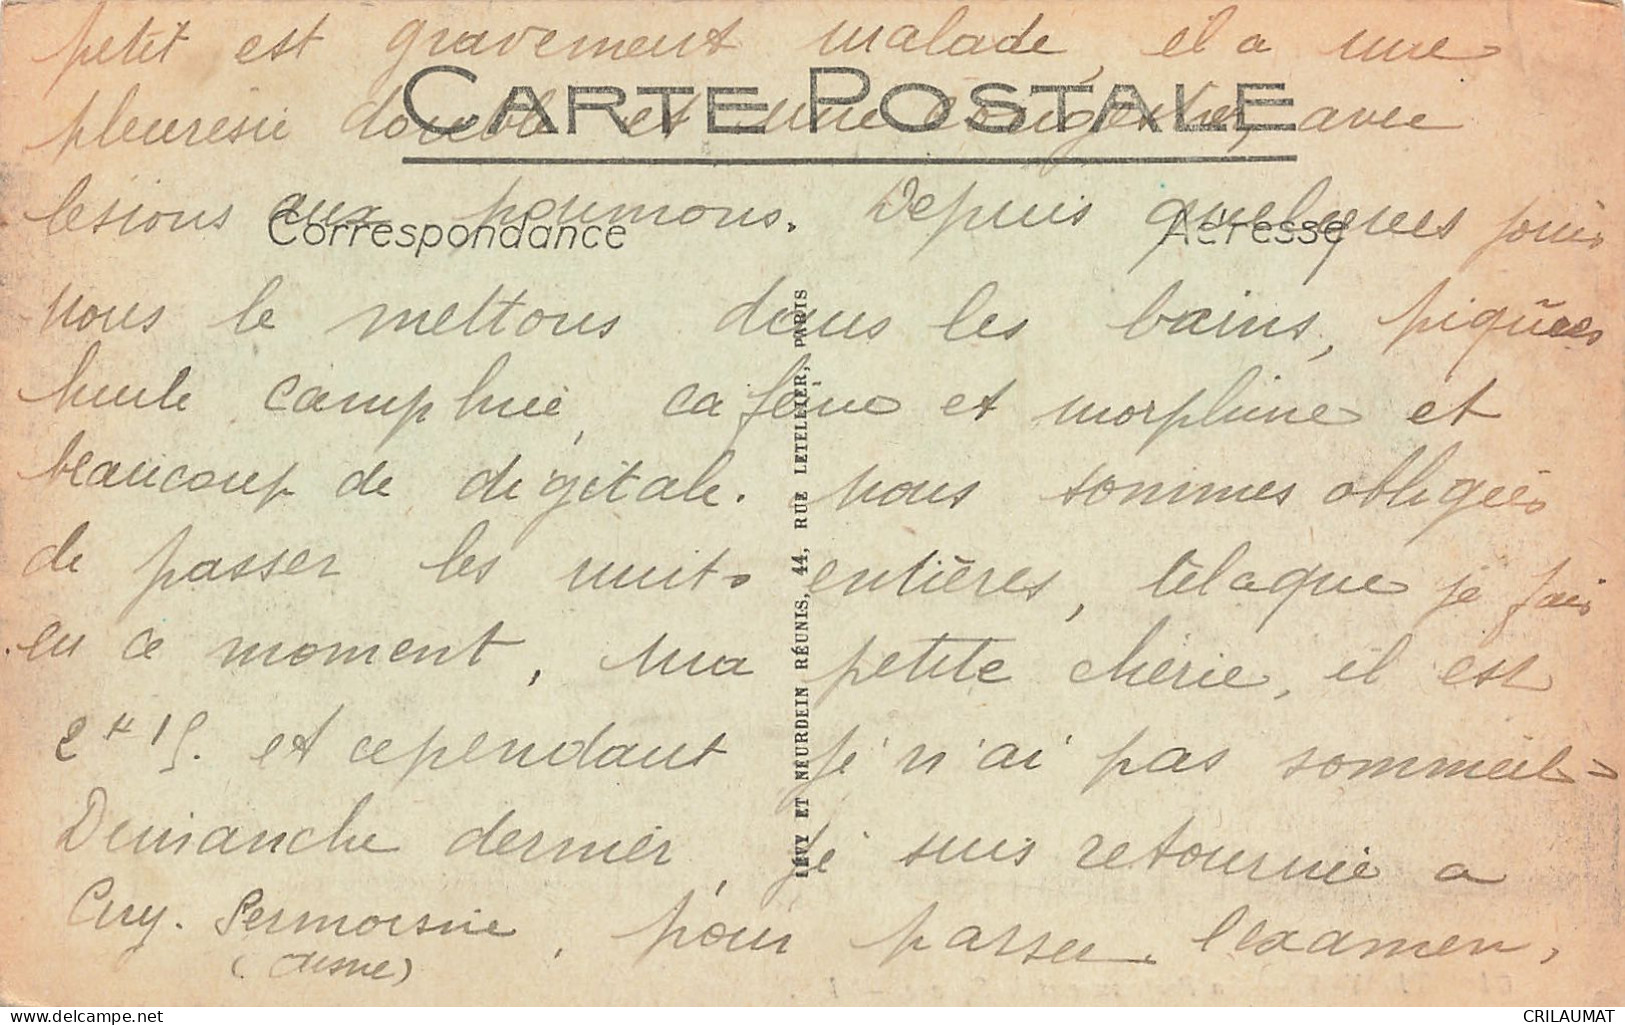 petit est gravement malade, il a une
CARTE POSTALE
pleurésie double et une congestion, avec
lésions aux poumons. Depuis quelques jours
Correspondance
Adresse
nous le mettons dans les bains, piqûres
huile camphrée, caféine et morphine et
beaucoup de digitale. nous sommes obligées
de passer les nuits entières, tel que je fais
en ce moment, ma petite chérie, il est
2 H 15. et cependant je n'ai pas sommeil =
Dimanche dernier, je suis retournée a
Ciry. Sermoisne, pour passer l'examen,
(Aisne)
LÉVY ET NEURDEIN RÉUNIS, 44, RUE LETELLIER, PARIS
http://www.delcampe.net
CRILAUMAT